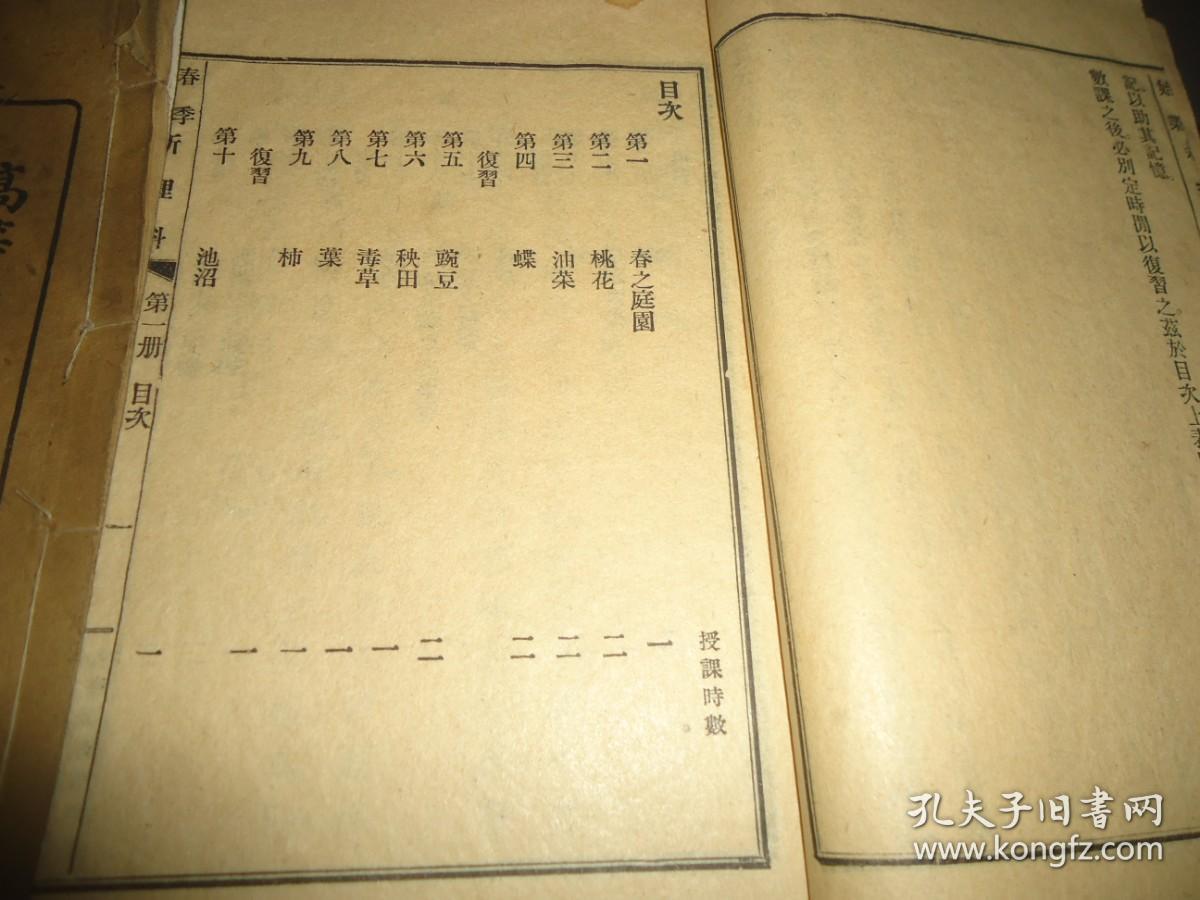 記以助其記憶。
數課之後。必別定時間以復習之。茲於目次上
目次
授課時數
第一 春之庭園 一
第二 桃花 二
第三 油菜 二
第四 蝶 二
復習
第五 豌豆 二
第六 秧田 一
第七 毒草 一
第八 葉 一
第九 柿 一
復習
第十 池沼 一
春季新理科 第一册 目次 一
高
孔夫子旧书网
www.kongfz.com